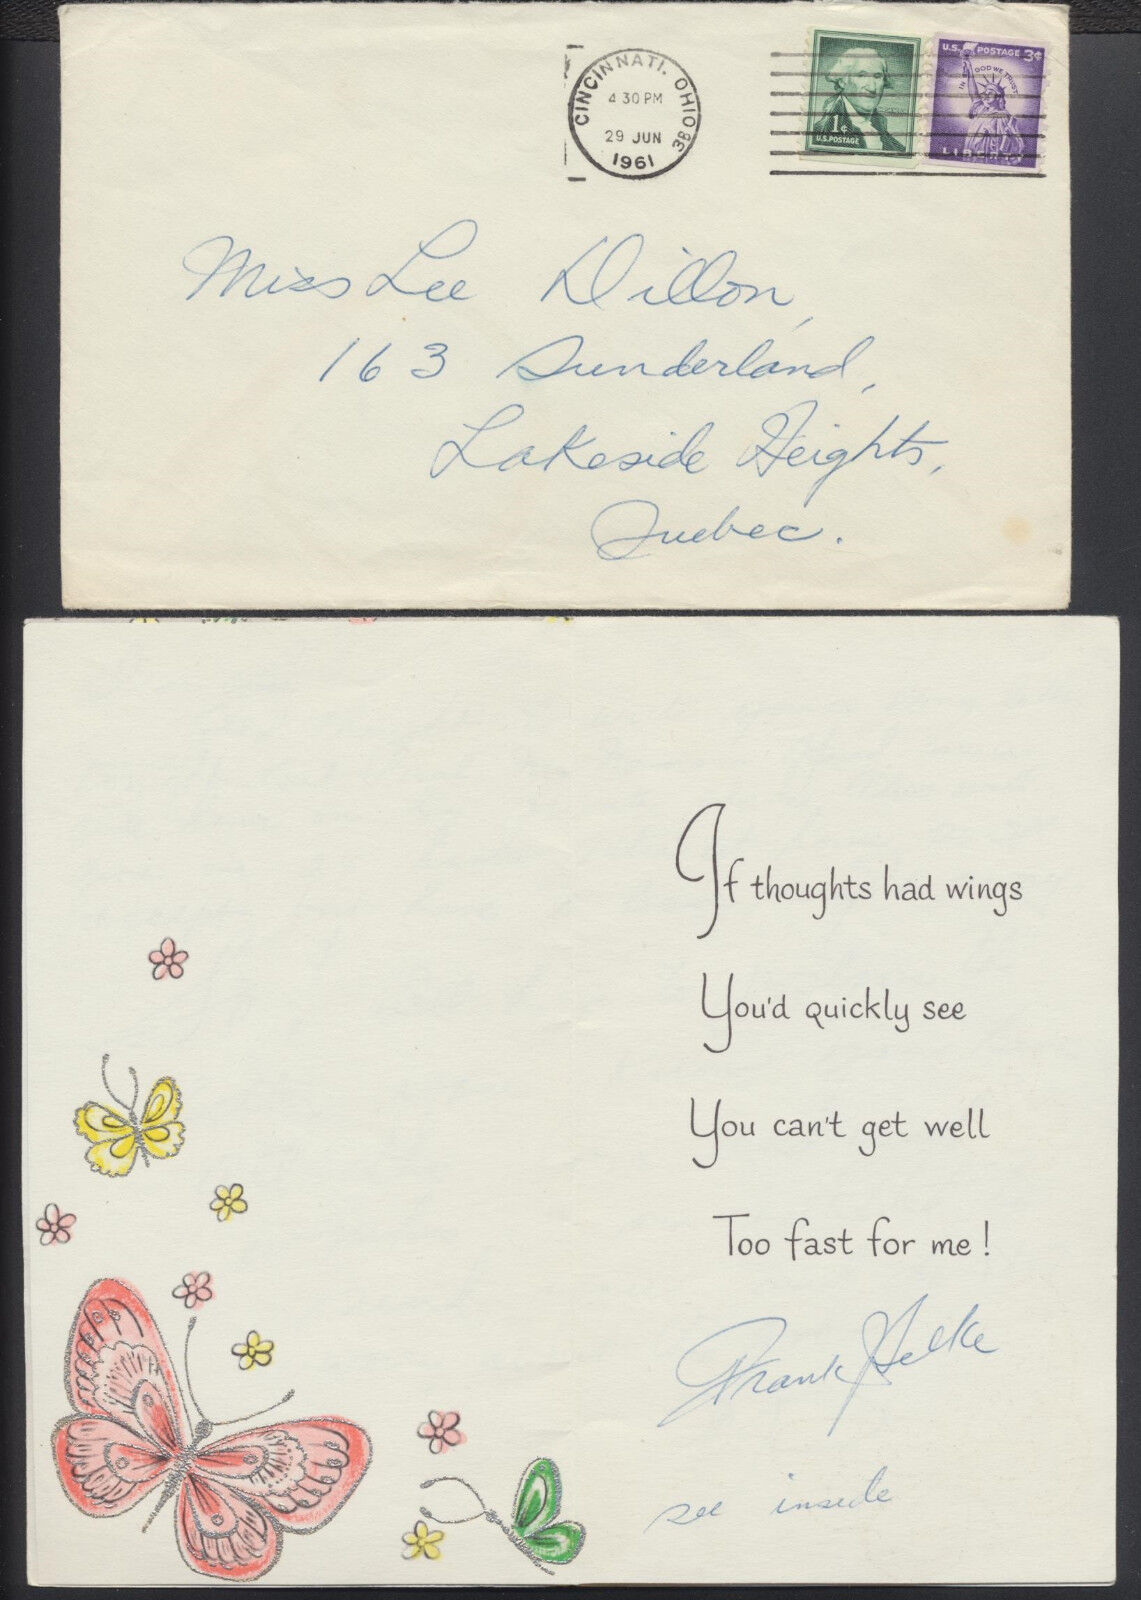 CINCINNATI, OHIO 3B
4 30 PM
29 JUN
1961
1¢
U.S. POSTAGE
U.S. POSTAGE 3¢
IN GOD WE TRUST
LIBERTY
Miss Lee Dillon,
163 Sunderland,
Lakeside Heights,
Quebec.
If thoughts had wings
You'd quickly see
You can't get well
Too fast for me!
Frank Selke
see inside